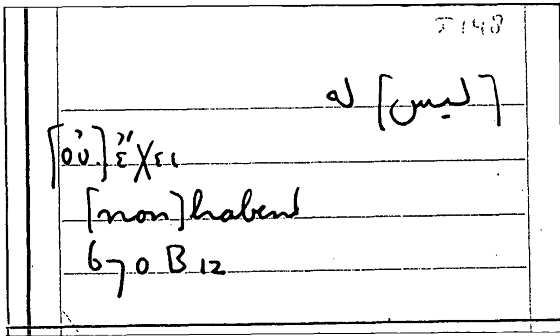 T 148
[ليس] له
[οὐ] ἔχει
[non] habent
670 B 12